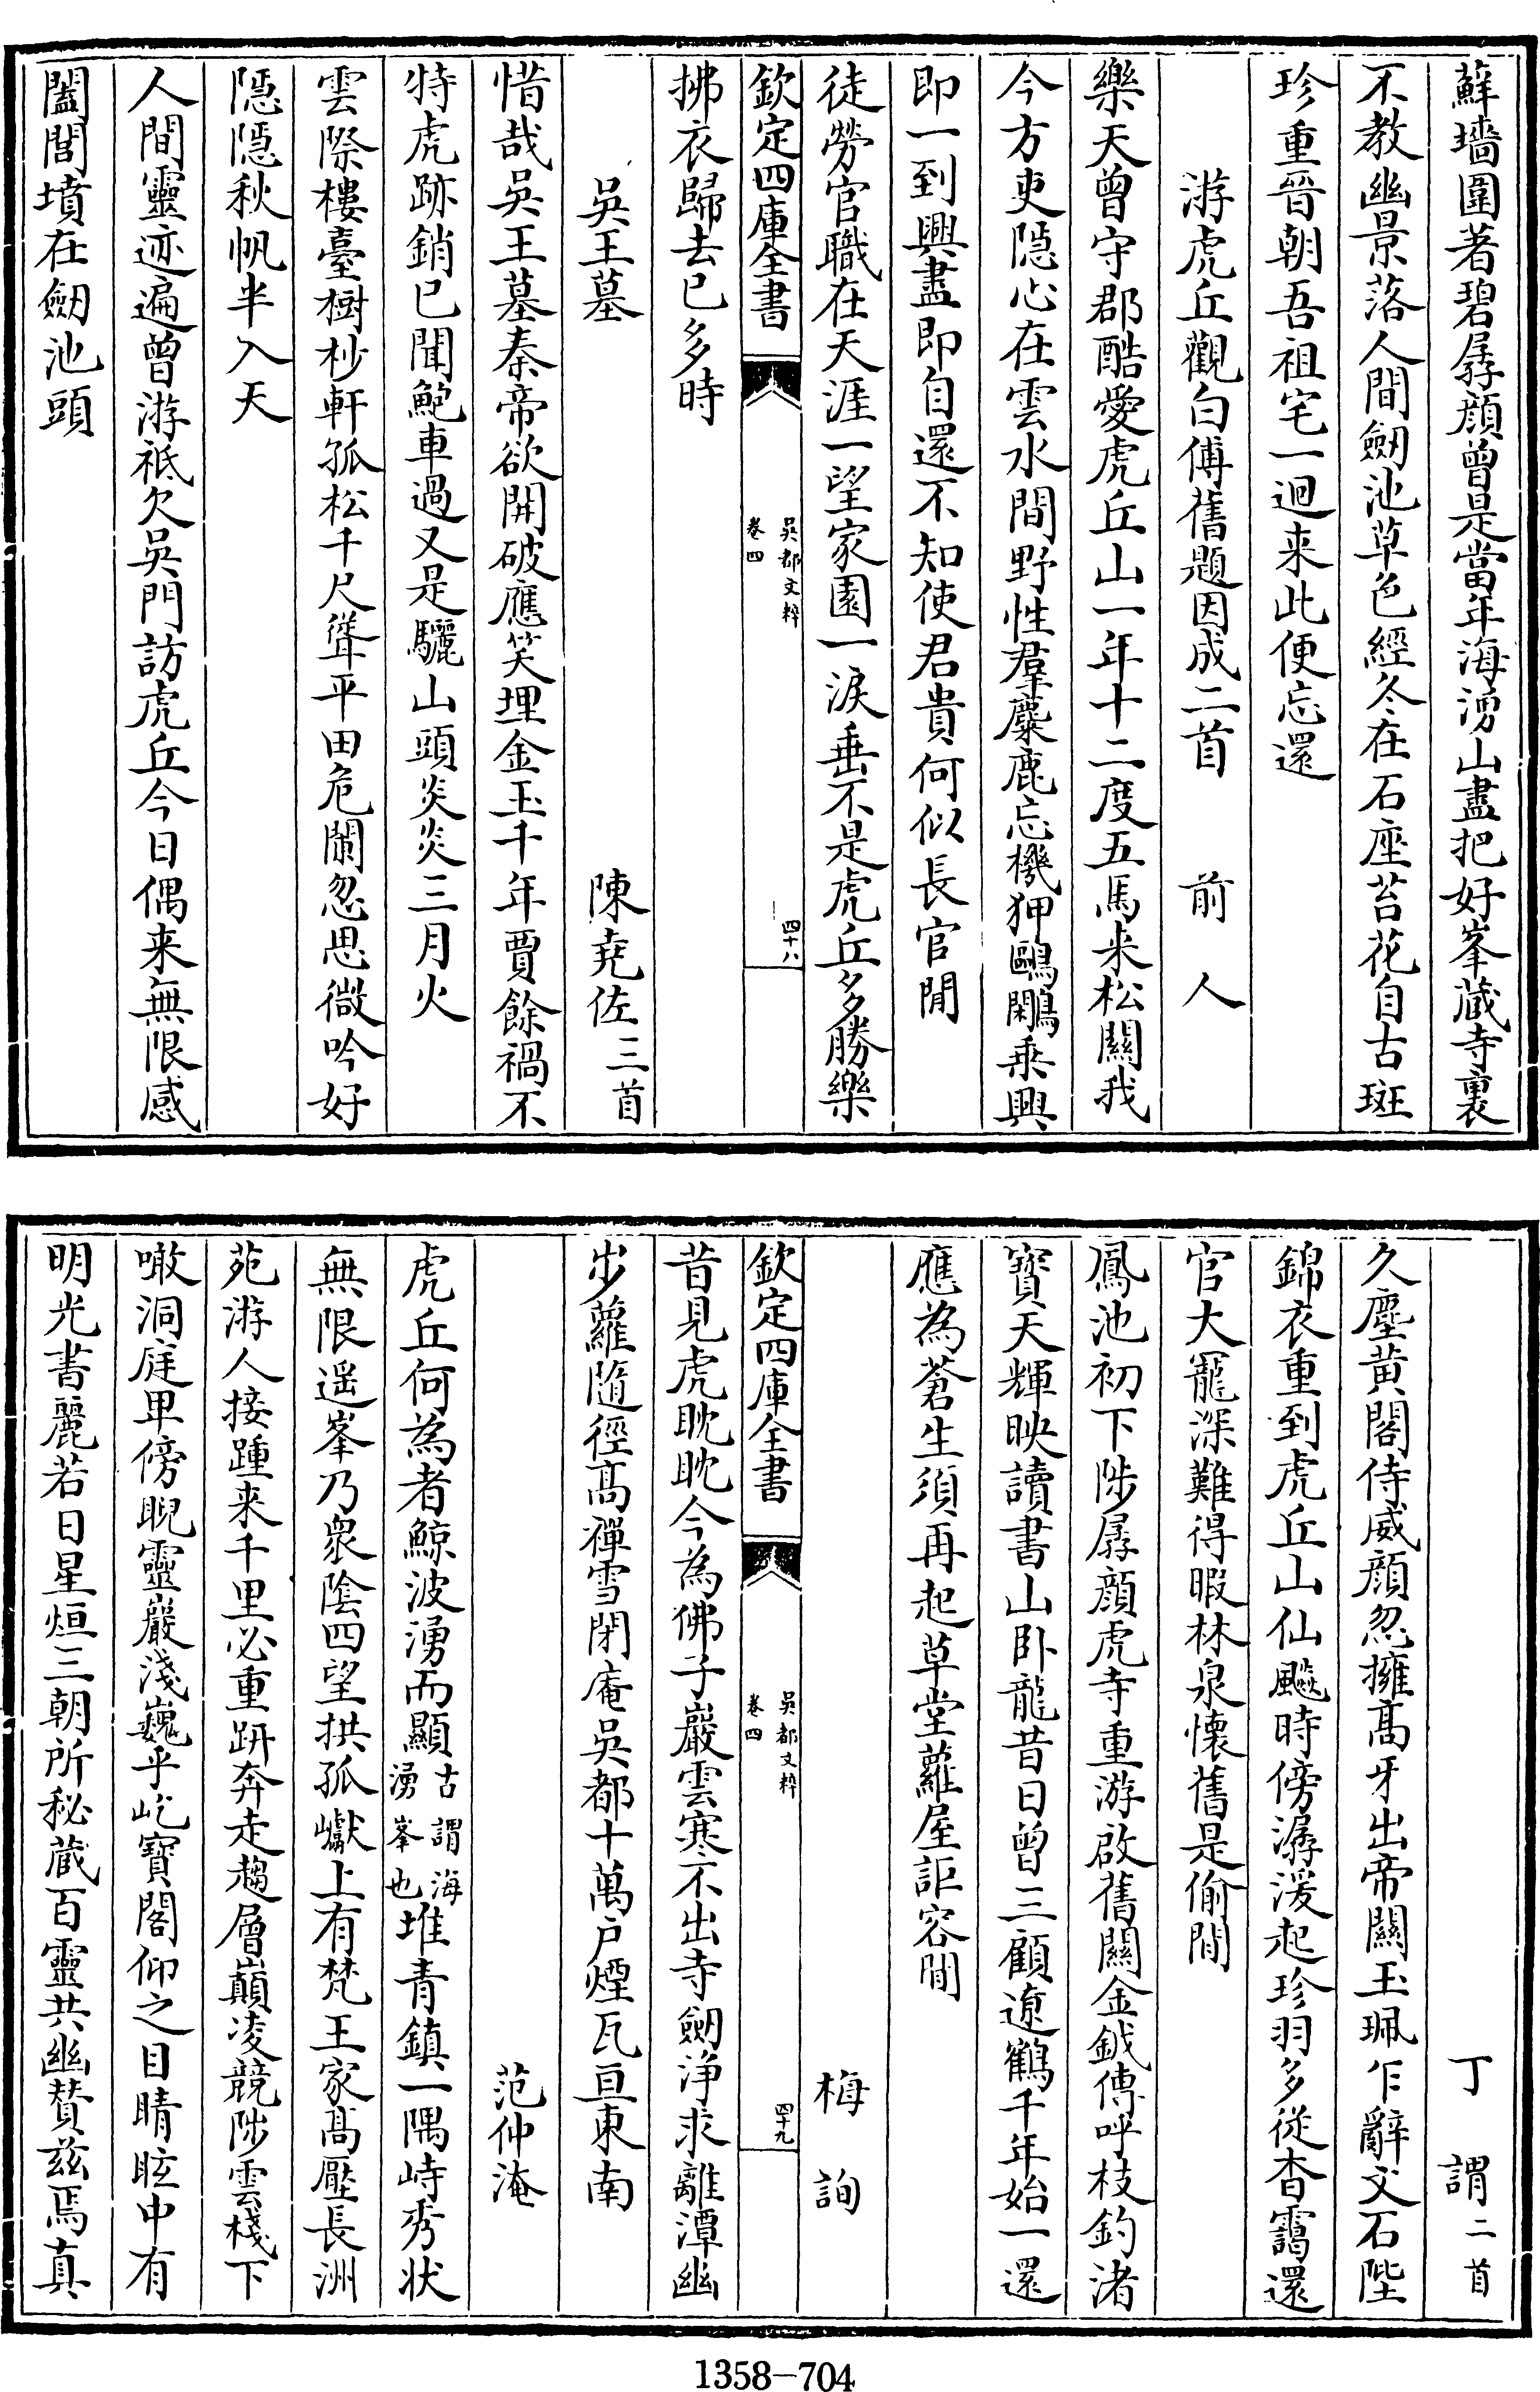 蘚墻圍著碧孱顔曾是當年海湧山盡把好峯藏寺裏
不教幽景落人間劒池草色經冬在石座苔花自古斑
珍重晉朝吾祖宅一迴来此便忘還
游虎丘觀白傅舊題因成二首 前人
樂天曾守郡酷愛虎丘山一年十二度五馬来松關我
今方吏隠心在雲水間野性羣麋鹿忘機狎鷗鷴乗興
即一到興盡即自還不知使君貴何似長官閒
徒勞官職在天涯一望家園一淚垂不是虎丘多勝樂
欽定四庫全書 吳都文粹 卷四 四十八
拂衣歸去已多時
吳王墓 陳堯佐三首
惜哉吳王墓秦帝欲開破應笑埋金玉千年賈餘禍不
特虎跡銷已聞鮑車過又是驪山頭炎炎三月火
雲際樓臺樹杪軒孤松千尺聳平田危闌忽思微吟好
隠隠秋帆半入天
人間靈迹遍曾游祗欠吳門訪虎丘今日偶来無限感
闔閭墳在劒池頭
丁謂二首
久塵黄閣侍威顔忽擁髙牙出帝關玉珮乍辭文石陛
錦衣重到虎丘山仙飈時傍潺湲起珍羽多從杳靄還
官大寵深難得暇林泉懷舊是偷閒
鳳池初下陟孱顔虎寺重游啟舊關金鉞傳呼枝釣渚
寳天輝映讀書山卧龍昔日曾三顧遼鶴千年始一還
應為蒼生須再起草堂蘿屋詎容閒
梅詢
欽定四庫全書 吳都文粹 卷四 四十九
昔見虎眈眈今為佛子巖雲寒不出寺劒浄求離潭幽
步蘿隨徑髙禪雪閉庵吳都十萬户煙瓦亘東南
范仲淹
虎丘何為者鯨波湧而顯古謂海湧峯也堆青鎮一隅峙秀状
無限遥峯乃衆陰四望拱孤巘上有梵王家髙壓長洲
苑游人接踵来千里必重趼奔走趨層巔凌競陟雲棧下
噉洞庭卑傍睨靈巖淺巍乎屹寳閣仰之目睛眩中有
明光書麗若日星烜三朝所秘藏百靈共幽賛兹焉真
1358-704